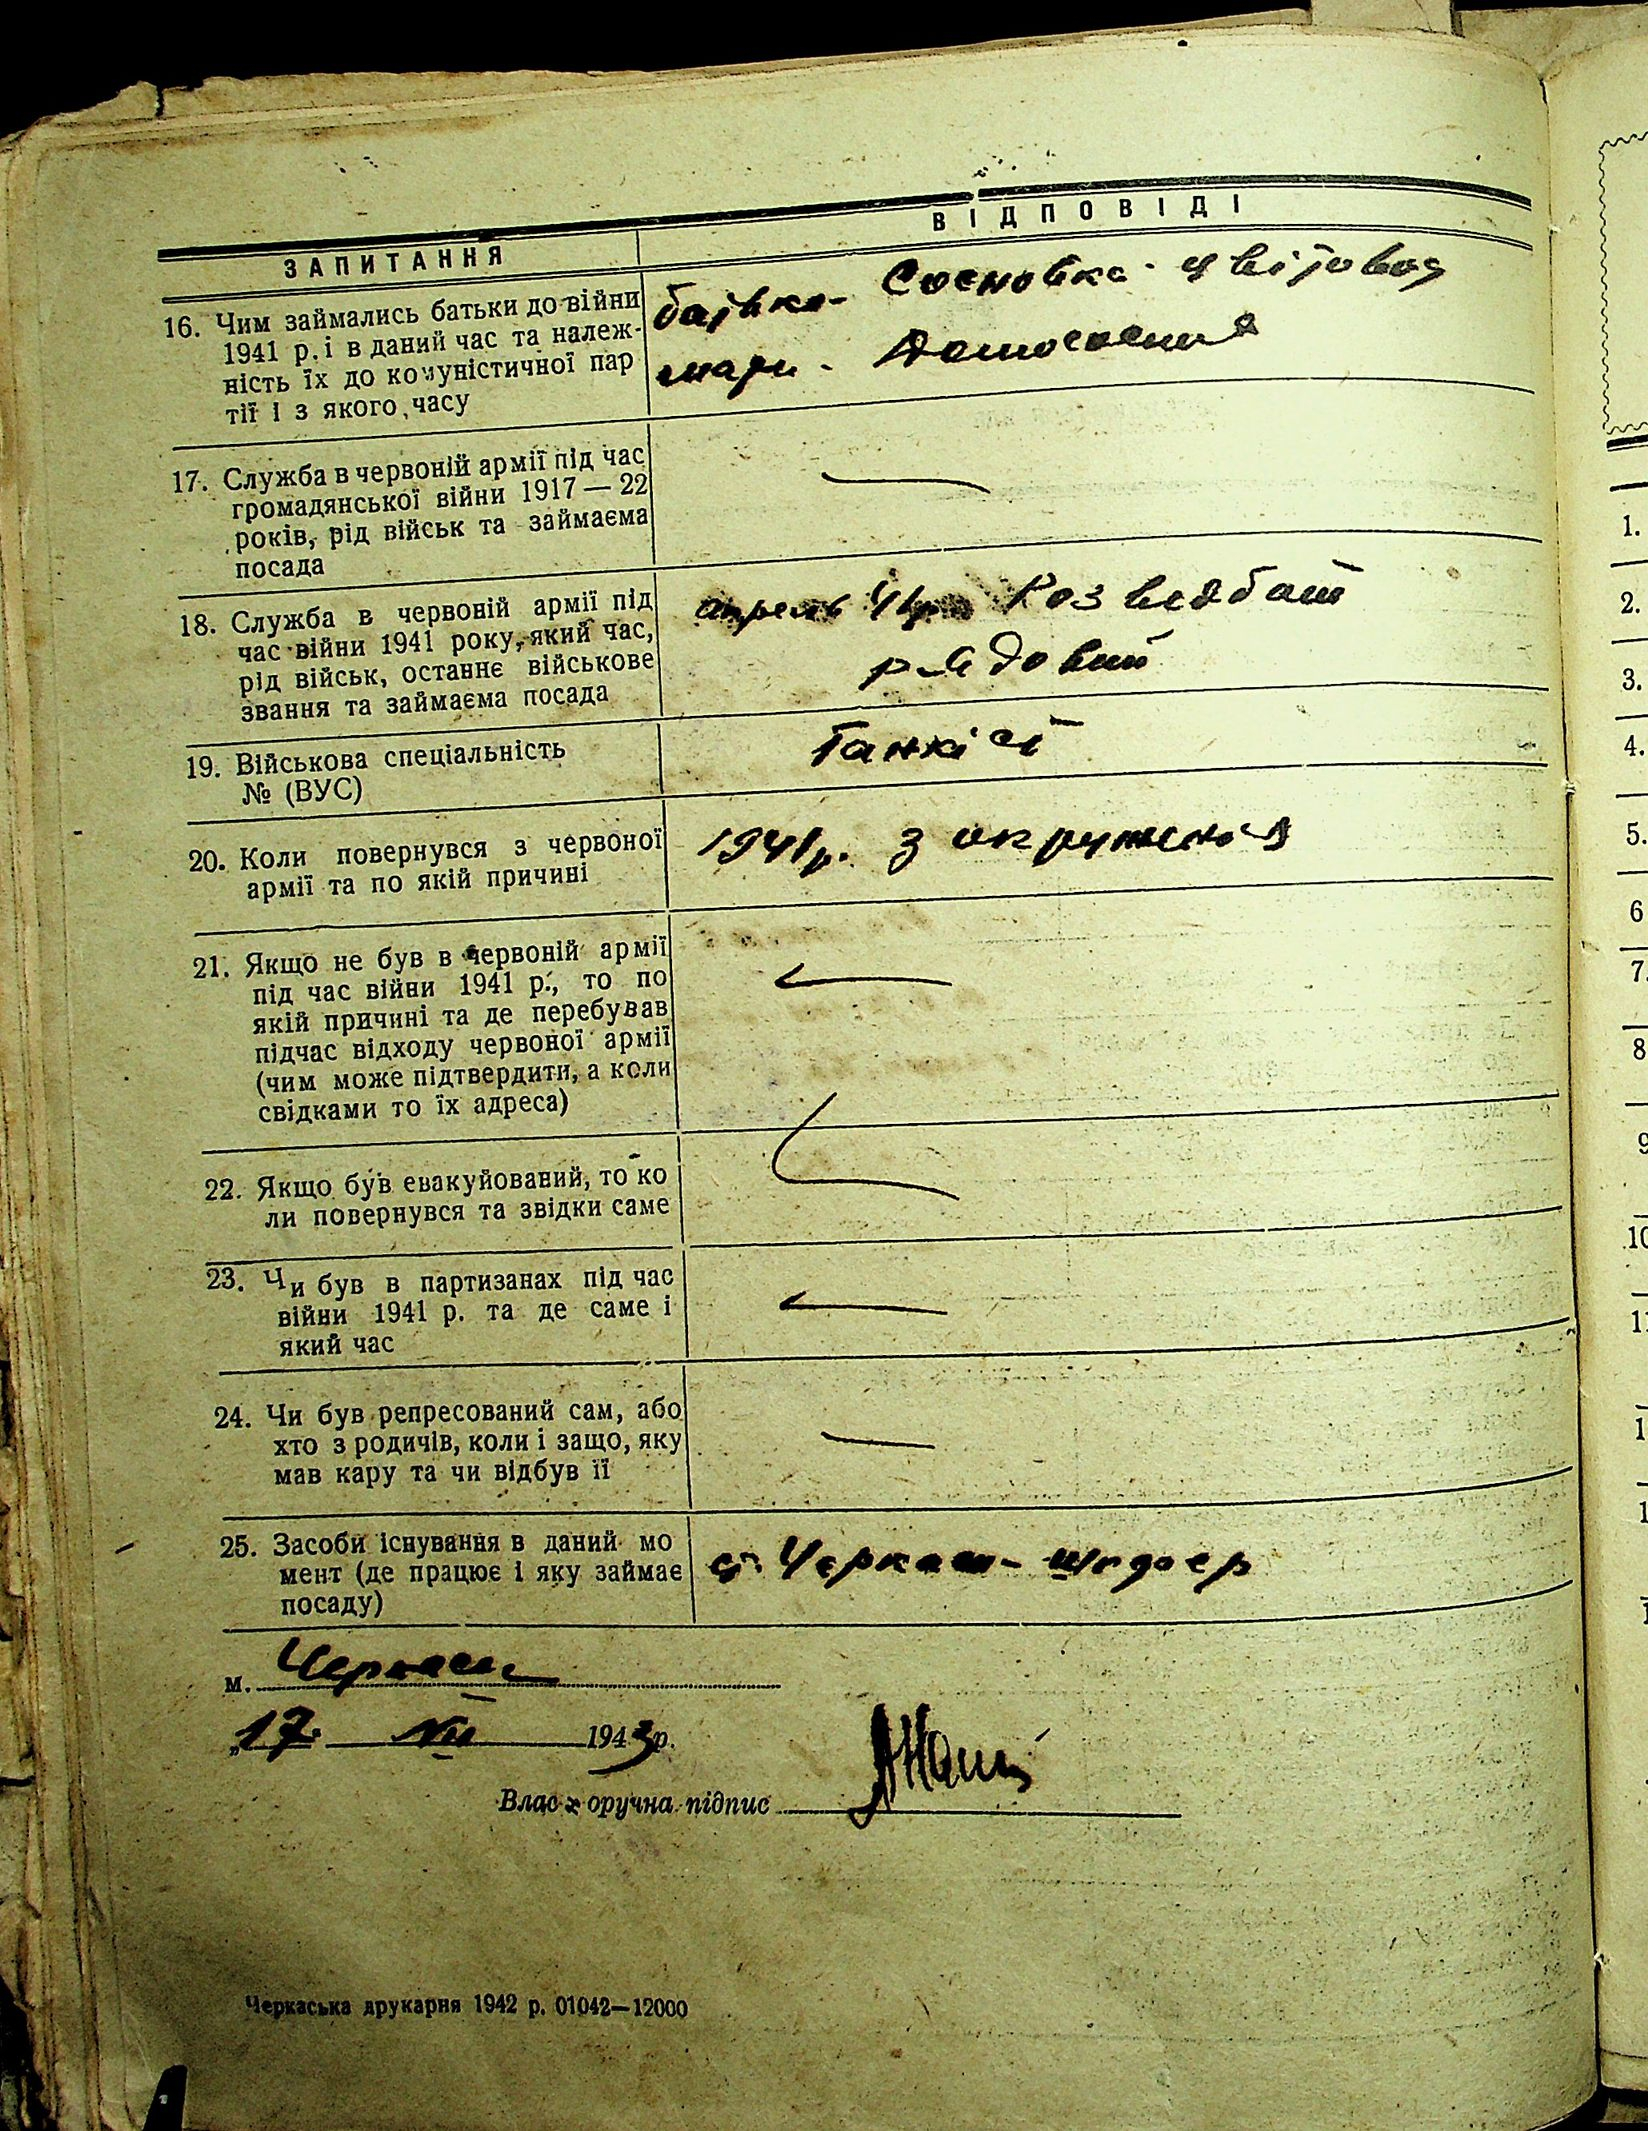 ЗАПИТАННЯ
ВІДПОВІДІ
16. Чим займались батьки до війни
1941 р. і в даний час та належ-
ність їх до комуністичної пар
тії і з якого часу
батько - Сосновка - цвітовод
мати - Домохозяика
17. Служба в червоній армії під час
громадянської війни 1917 — 22
років, рід військ та займаєма
посада
18. Служба в червоній армії під
час війни 1941 року, який час,
рід військ, останнє військове
звання та займаєма посада
апрель 41р. Розведбат
рядовий
19. Військова спеціальність
№ (ВУС)
Танкіст
20. Коли повернувся з червоної
армії та по якій причині
1941р. з окруженія
21. Якщо не був в червоній армії
під час війни 1941 р., то по
якій причині та де перебував
підчас відходу червоної армії
(чим може підтвердити, а коли
свідками то їх адреса)
22. Якщо був евакуйований, то ко
ли повернувся та звідки саме
23. Чи був в партизанах під час
війни 1941 р. та де саме і
який час
24. Чи був репресований сам, або
хто з родичів, коли і защо, яку
мав кару та чи відбув її
25. Засоби існування в даний мо
мент (де працює і яку займає
посаду)
ст. Черкаси - шофер
м. Черкаси
"17" VII 1943 р.
Влас оручна підпис
Черкаська друкарня 1942 р. 01042—12000
1.
2.
3.
4.
5.
6
7.
8
9
10